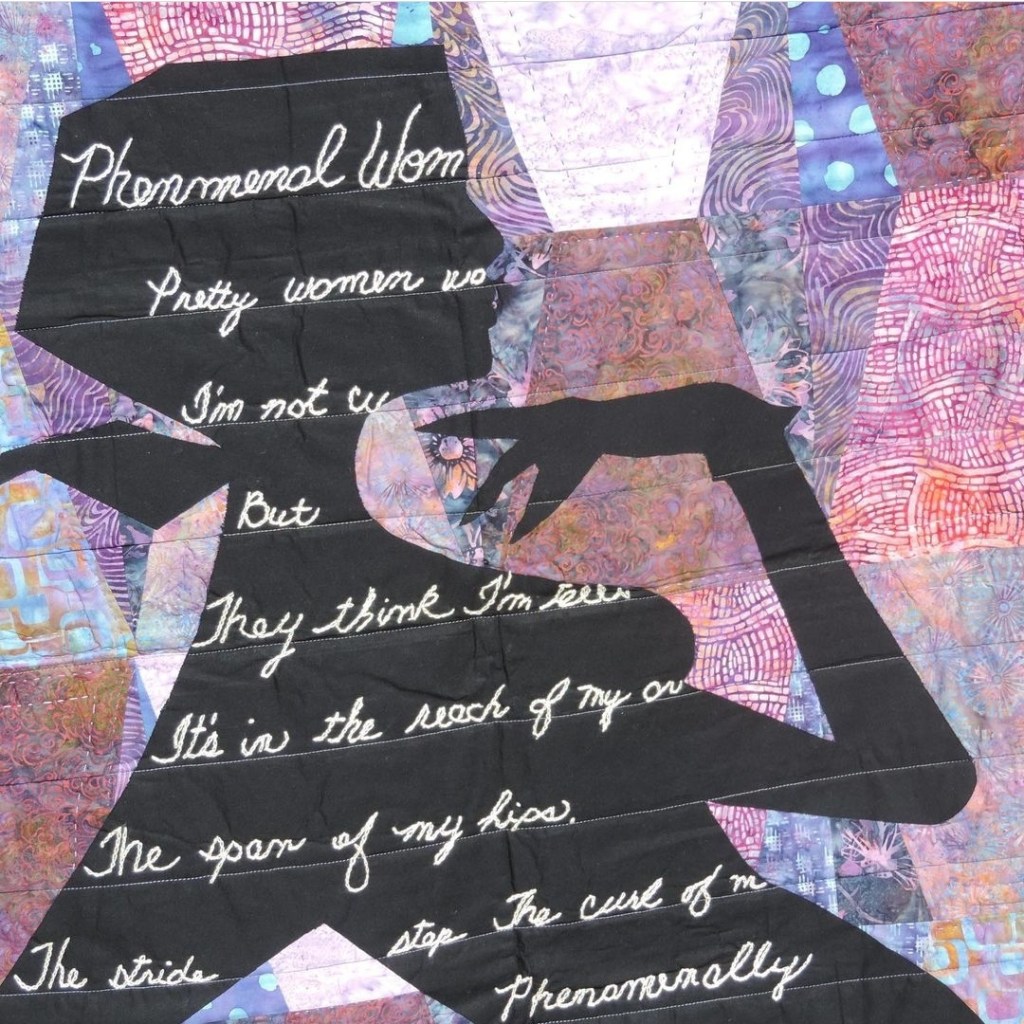 Phenmenal Wom
Pretty women wo
I'm not cu
But
They think I'm telli
It's in the reach of my ar
The span of my hips.
The stride step The curl of m
Phenomenally